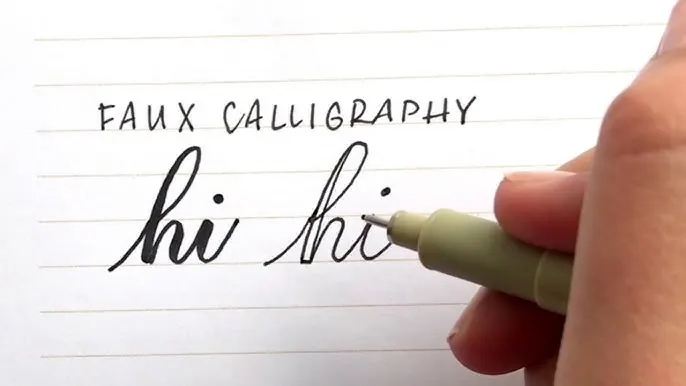 FAUX CALLIGRAPHY
hi hi